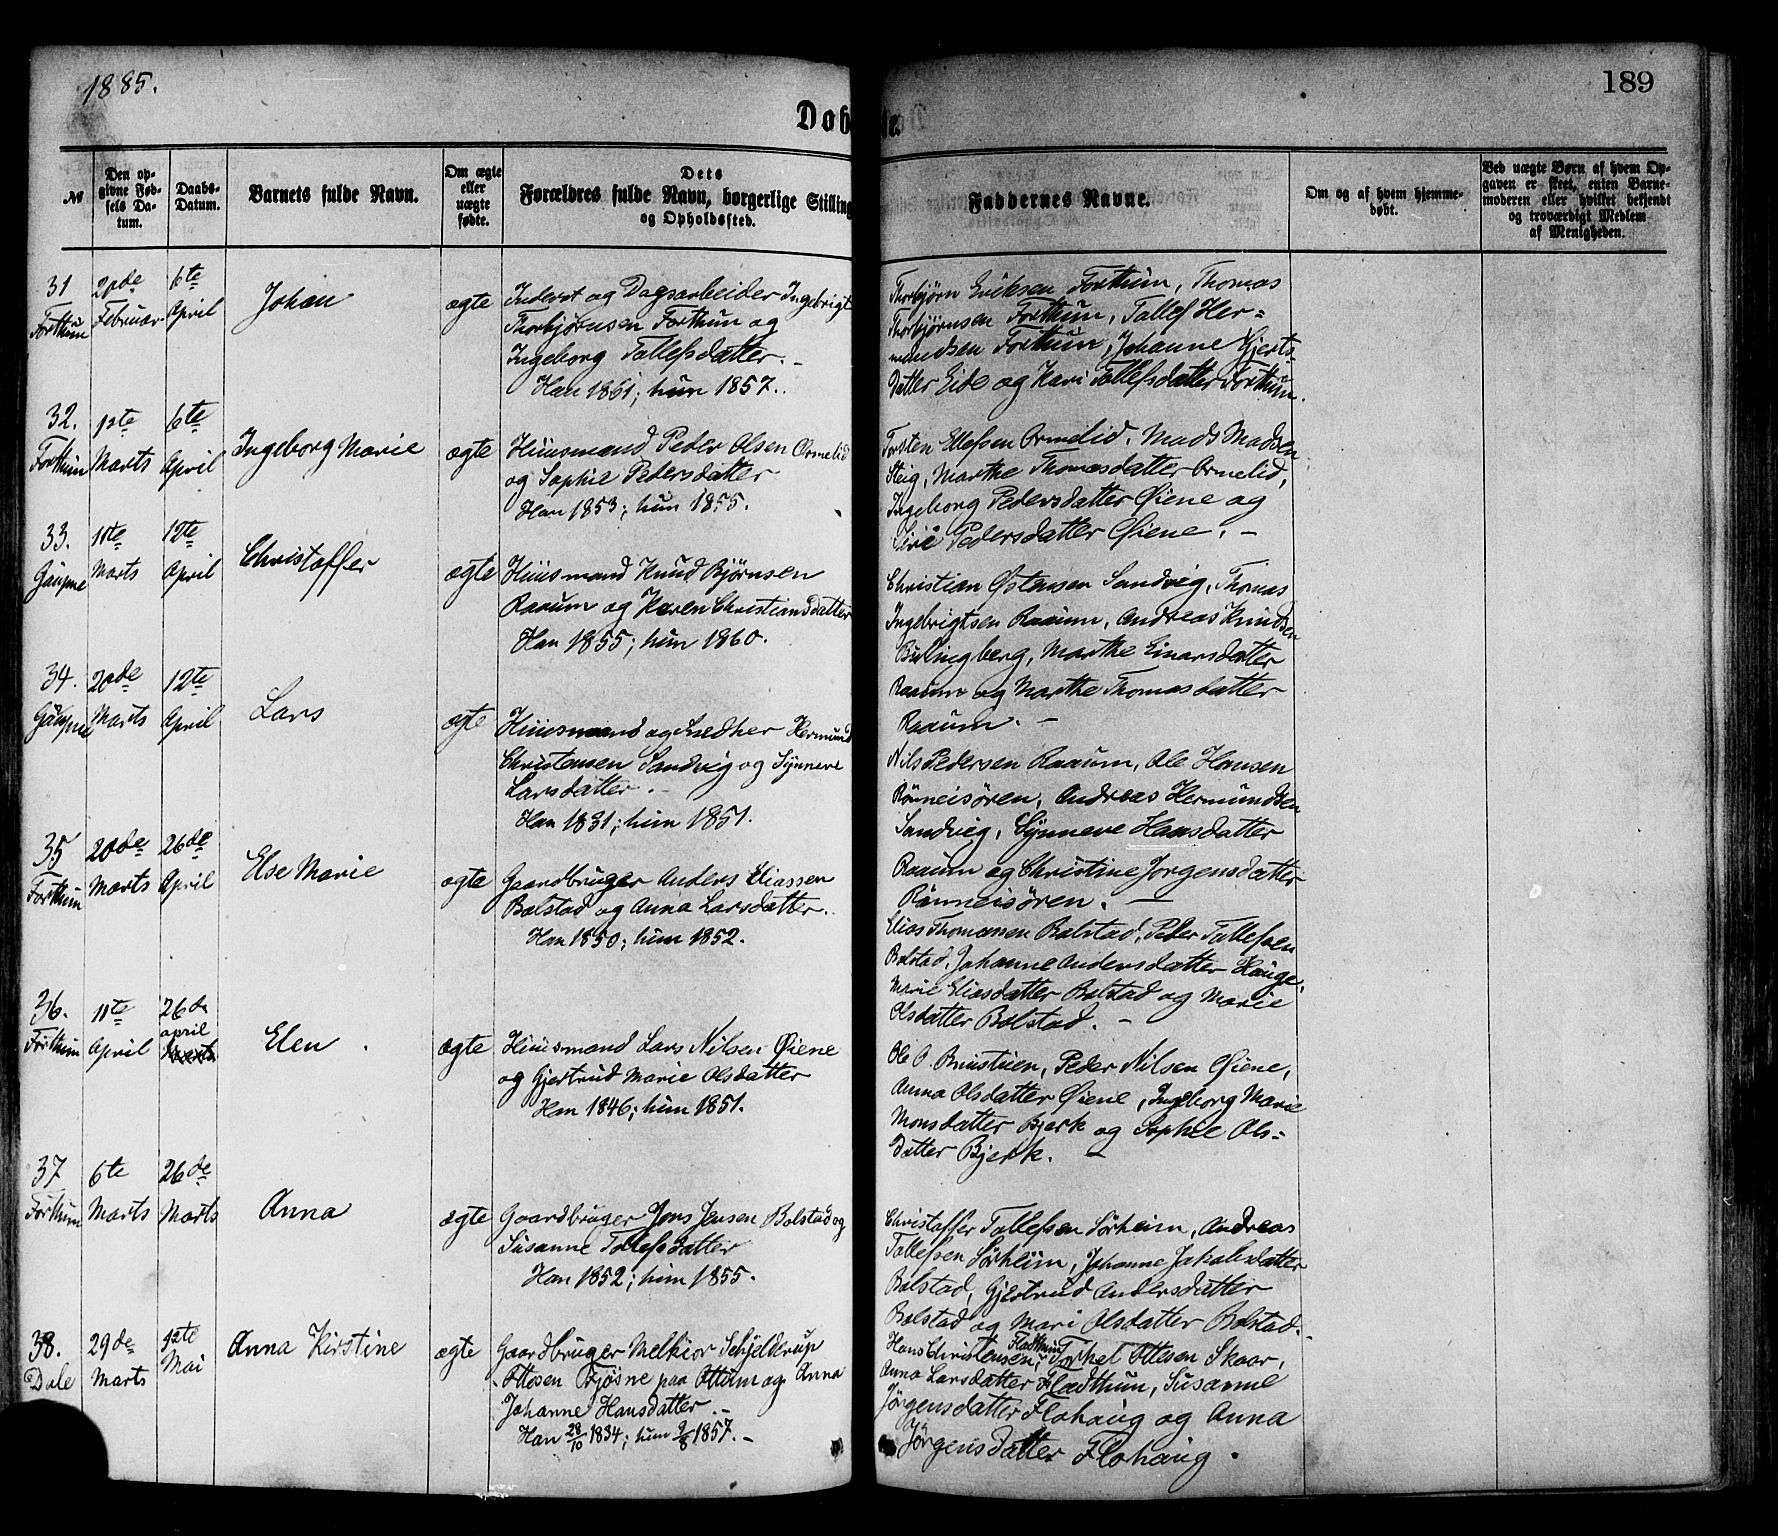 1885.
189
Døbte.
№
Den opgivne Fødsels Datum.
Daabs-Datum.
Barnets fulde Navn.
Om ægte eller uægte fødte.
Dets Forældres fulde Navn, borgerlige Stilling og Opholdssted.
Faddernes Navne.
Om og af hvem hjemmedøbt.
Ved uægte Børn af hvem Opgaven er skeet, enten Barnemoderen eller hvilket bekjendt og troværdigt Medlem af Menigheden.
31 Forthun
20de Februar
6te April
Johan
ægte
Inderst og Dagsarbeider Ingebrigt
Thorbjørnsen Forthun og
Ingeborg Tollefsdatter. -
Han 1861; hun 1857.
Thorbjørn Eriksen Forthun, Thomas
Thorbjørnsen Forthun, Tollef Her=
mundsen Forthun, Johanne Gjerts
datter Eide og Kari Tollefsdatter Forthun.
32. Forthun
12te Marts
6te April
Ingeborg Marie
ægte
Huusmand Peder Olsen Ormelid
og Sophie Pedersdatter
Han 1853; hun 1855.
Torsten Ellefsen Ormelid, Mads Madsen
Steig, Marthe Thomasdatter Ormelid,
Ingeborg Pedersdatter Øiene og
Siri Pedersdatter Øiene. -
33. Gaupne
11te Marts
12te April
Christoffer
ægte
Huusmand Knud Bjørnsen
Raaum og Karen Christiansdatter
Han 1855; hun 1860.
Christian Østensen Sandvig, Thomas
Ingebrigtsen Raaum, Andreas Knudsen
Bulingberg, Marthe Einarsdatter
Raaum og Marthe Thomasdatter
Raaum. -
34. Gaupne
20de Marts
12te April
Lars
ægte
Huusmand og Snedker Hermund
Christensen Sandvig og Synneve
Larsdatter. -
Han 1831; hun 1851.
Nils Pedersen Raaum, Ole Hansen
Rønneisøren, Andreas Hermundsen
Sandvig, Synneve Hansdatter
Raaum og Christine Jørgensdatter
Rønneisøren. -
35 Forthun
20de Marts
26de April
Else Marie
ægte
Gaardbruger Anders Eliassen
Bolstad og Anna Larsdatter.
Han 1850; hun 1852.
Elias Thomassen Bolstad, Peder Tollefsen
Bolstad, Johanne Andersdatter Hauge,
Marie Eliasdatter Bolstad og Marie
Olsdatter Bolstad. -
36. Forthun
11te April
26de April
Elen
ægte
Huusmand Lars Nilsen Øiene
og Gjertrud Marie Olsdatter
Han 1846; hun 1851.
Ole O. Brustuen, Peder Nilsen Øiene,
Anna Olsdatter Øiene, Ingeborg Marie
Monsdatter Bjerk og Sophie Ols=
datter Bjerk. -
37 Forthun
6te Marts
26de Marts
Anna
ægte
Gaardbruger Jens Jensen Bolstad og
Susanne Tollefsdatter
Han 1852; hun 1855.
Christoffer Tollefsen Sørheim, Andreas
Tollefsen Sørheim, Johanne Jakobsdatter
Bolstad, Gjertrud Andersdatter
Bolstad og Mari Olsdatter Bolstad.
38. Dale
29de Marts
12te Mai
Anna Kirstine
ægte
Gaardbruger Melkior Schjelderup
Ottesen Fjøsne paa Ottum og Anna
Johanne Hansdatter. -
Han 28/10 1834; hun 9/8 1857. -
Hans Christensen Flatthun, Torkel Ottesen Skaar,
Anna Larsdatter Fladthun, Susanne
Jørgensdatter Flohaug og Anna
Jørgensdatter Flohaug.